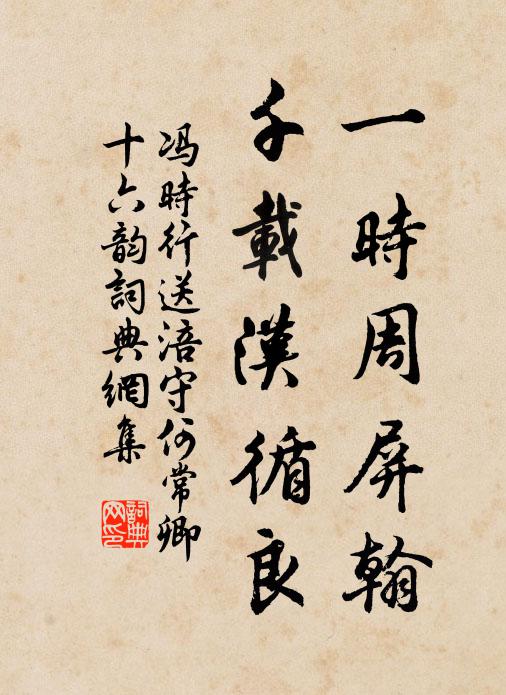 一時周屏翰
千載漢循良
冯時行送涪守何常卿
十六韵詞典網集
詞典网印